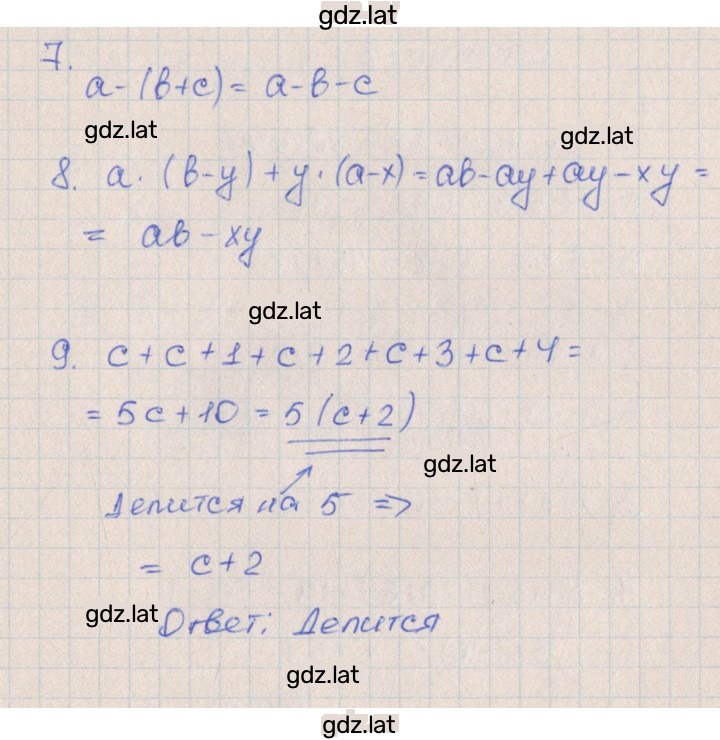 gdz.lat
7.
a-(b+c)= a-b-c
gdz.lat
gdz.lat
8. a·(b-y)+y·(a-x)=ab-ay+ay-xy=
= ab-xy
gdz.lat
9. c+c+1+c+2+c+3+c+4=
= 5c+10=5(c+2)
gdz.lat
Делится на 5 =>
= c+2
gdz.lat
Ответ: Делится
gdz.lat
gdz.lat